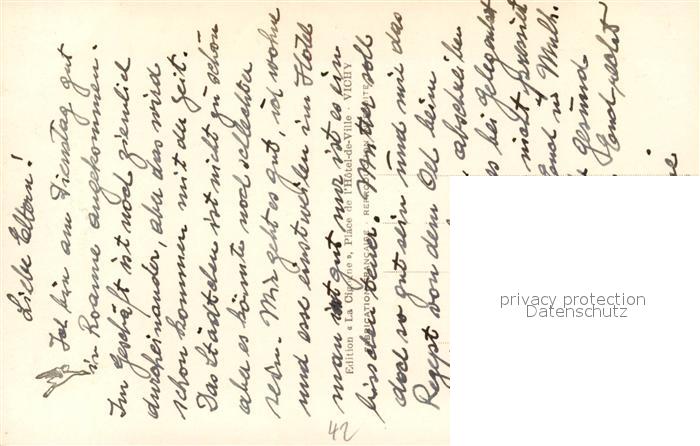 Liebe Eltern!
Ich bin am Dienstag gut
in Roanne angekommen.
Im Geschäft ist noch ziemlich
durcheinander, aber das wird
schon kommen mit der Zeit.
Das Städtchen ist nicht zu schön
aber es könnte noch schlechter
sein. Mir geht es gut, ich wohne
und esse einstweilen im Hotel
man ist gut nur ist es ein
bisschen teuer. Mutter soll
doch so gut sein und mir das
Rezept von dem Oel beim
abschreiben
es bei Gelegenheit
nicht pressiert
und in Mulh.
gesund
Euch recht
Edition « La Cigogne », Place de l'Hôtel-de-Ville - VICHY
FABRICATION FRANÇAISE - REPRO
42
privacy protection
Datenschutz